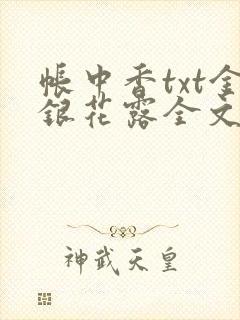 帳中香txt金
銀花露全文
神武天皇